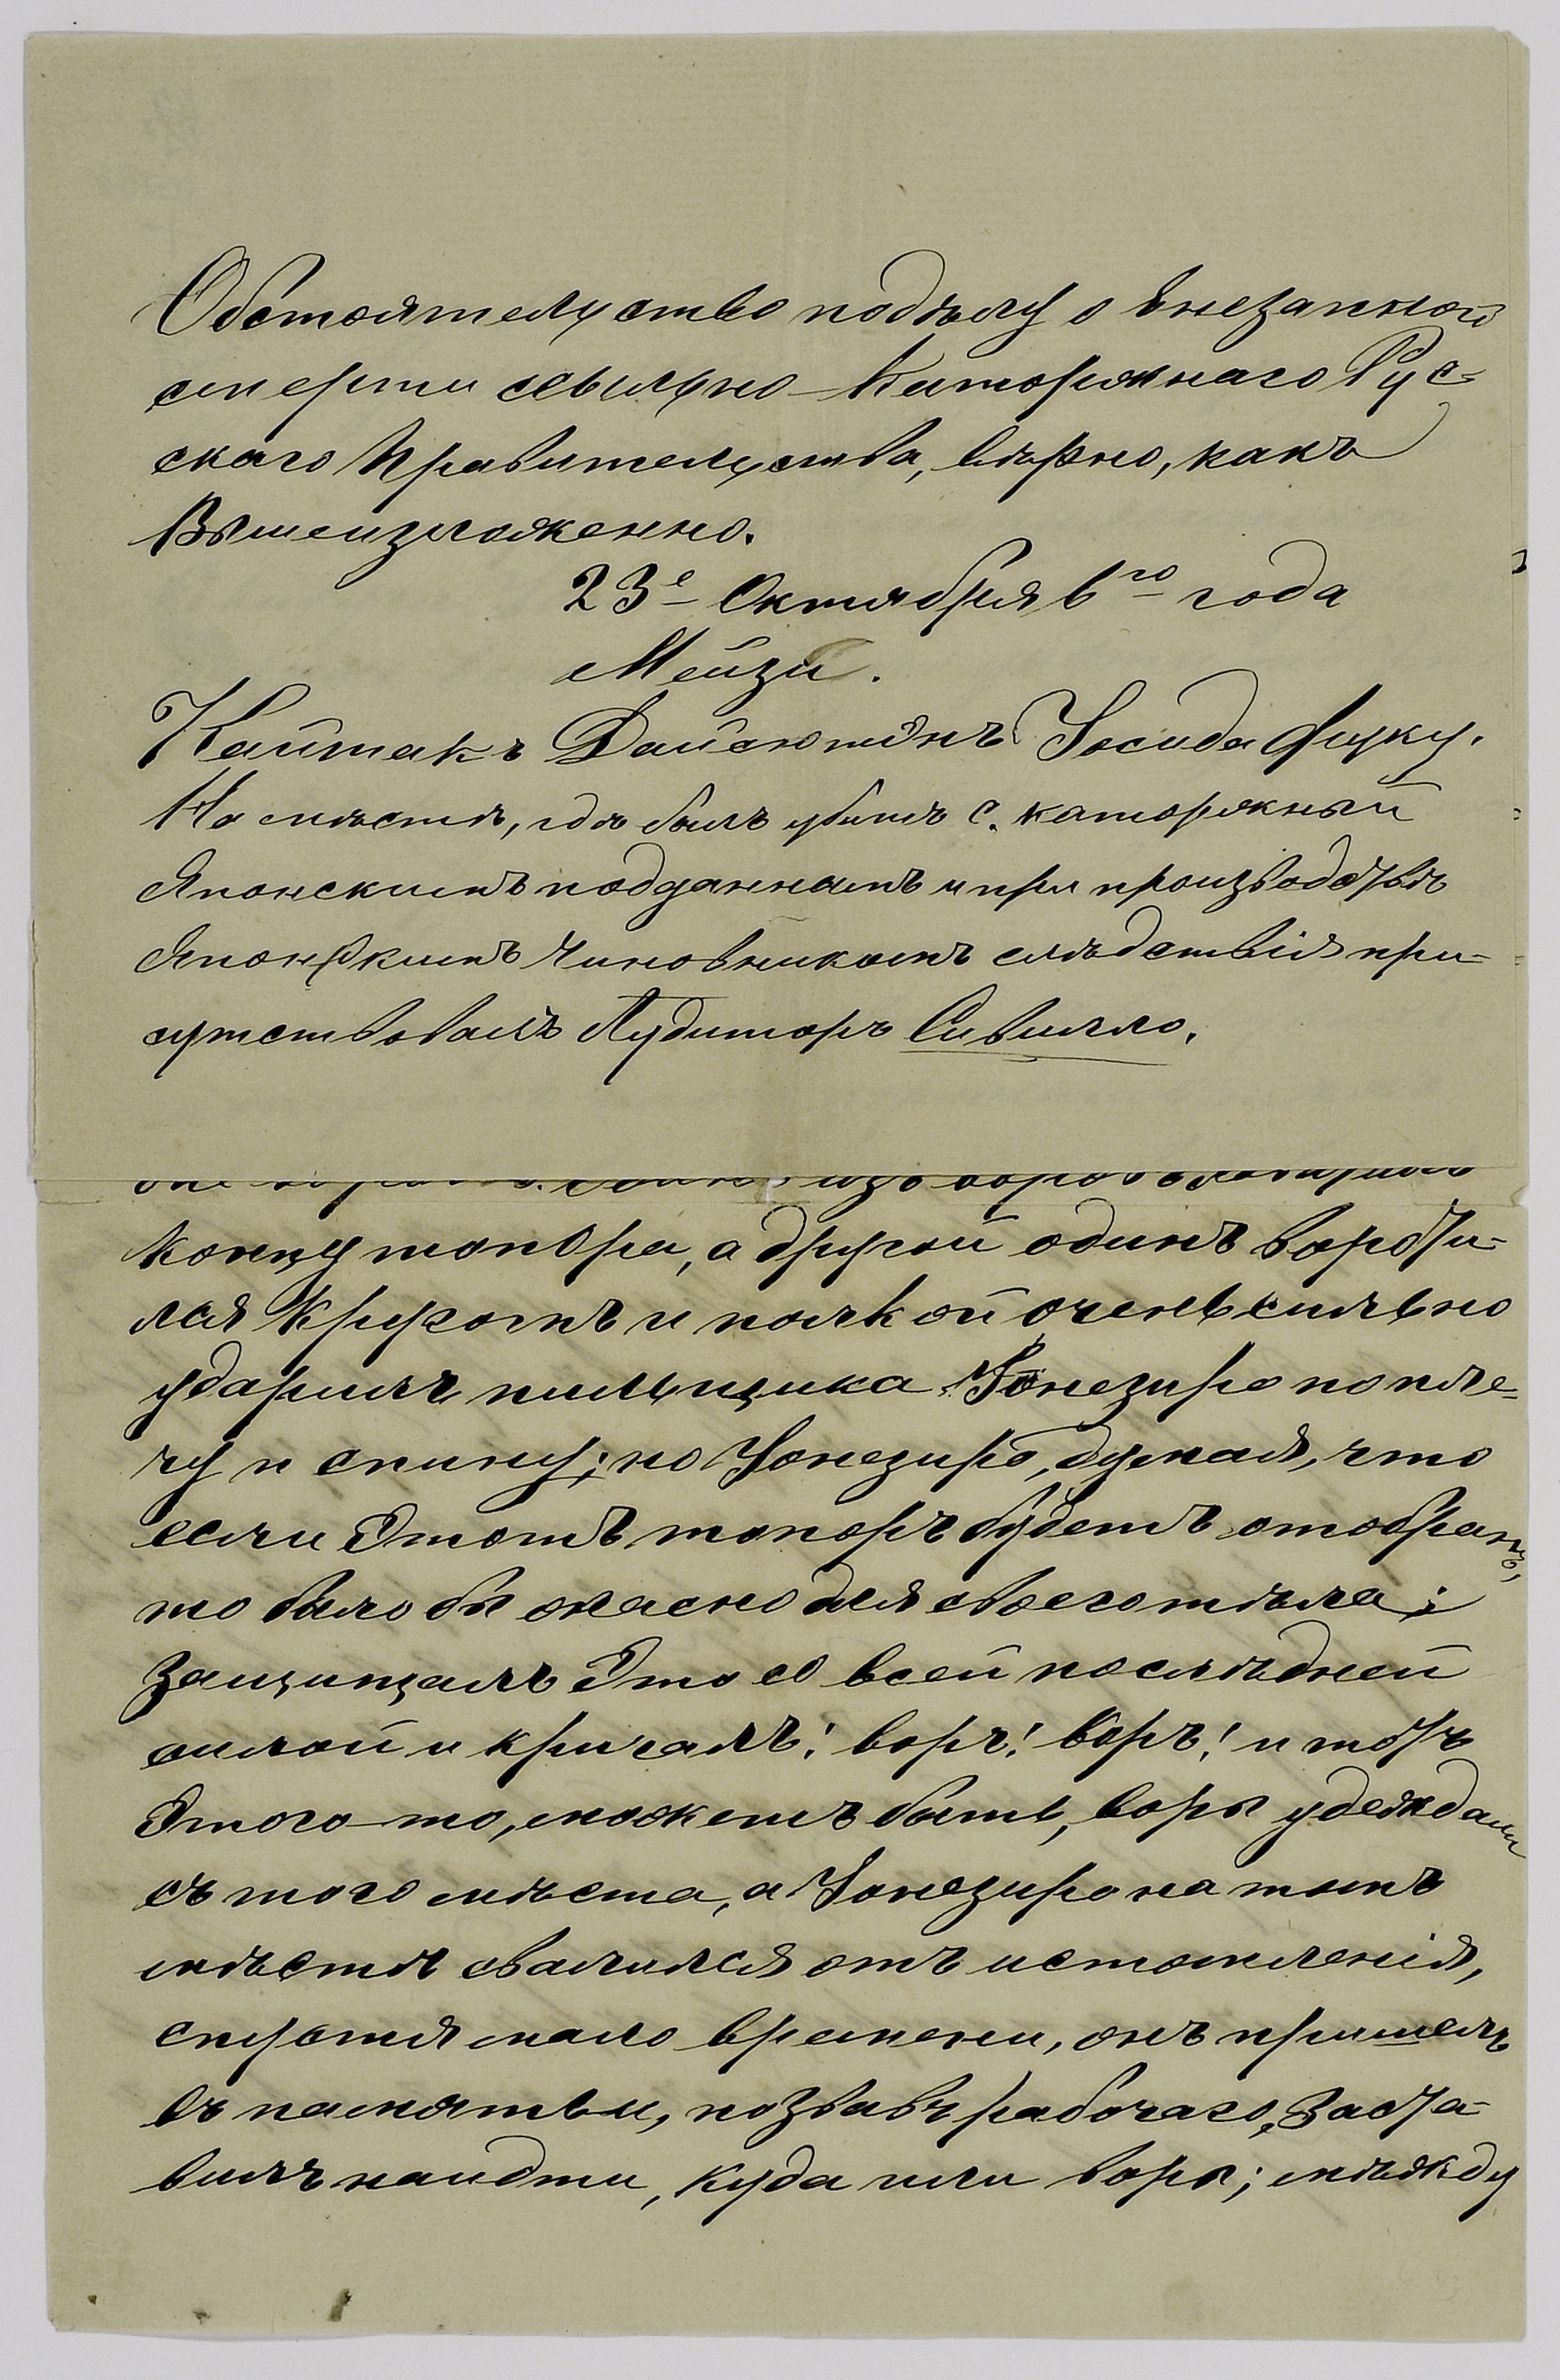 Обстоятельство подѣлу о внезапной
смерти ссыльно-Каторжнаго Рус-
скаго Правительства, вѣрно, какъ
Вышеизложенно.
23е Октября 6го года
Мейзи.
Кайтакъ Дайсютенъ Іосида Фуку.
На мѣстѣ, гдѣ былъ убитъ с. каторжный
Японскимъ подданнымъ и при производствѣ
Японскимъ Чиновникомъ слѣдствія при-
сутствовалъ Аудиторъ Сивилло.
изъ воровъ
концу топора, а другой одинъ вороти-
лся Кругомъ и палкой очень сильно
ударилъ пильщика Іонезиро по пле-
чу и спину; но Іонезиро, думая, что
если Этотъ топоръ будетъ отобранъ,
то было бы опасно для своего тѣла;
Защищалъ Это со всей послѣдней
силой и кричалъ! воръ! воръ! и отъ
Этого-то, можетъ быть, воры убежали
съ того мѣста, а Іонезиро на томъ
мѣстѣ свалился отъ истомленія,
спустя мало времени, онъ пришелъ
въ памятьи, позвавъ рабочаго, Заста-
вилъ наидти, куда шли воры; мѣжду